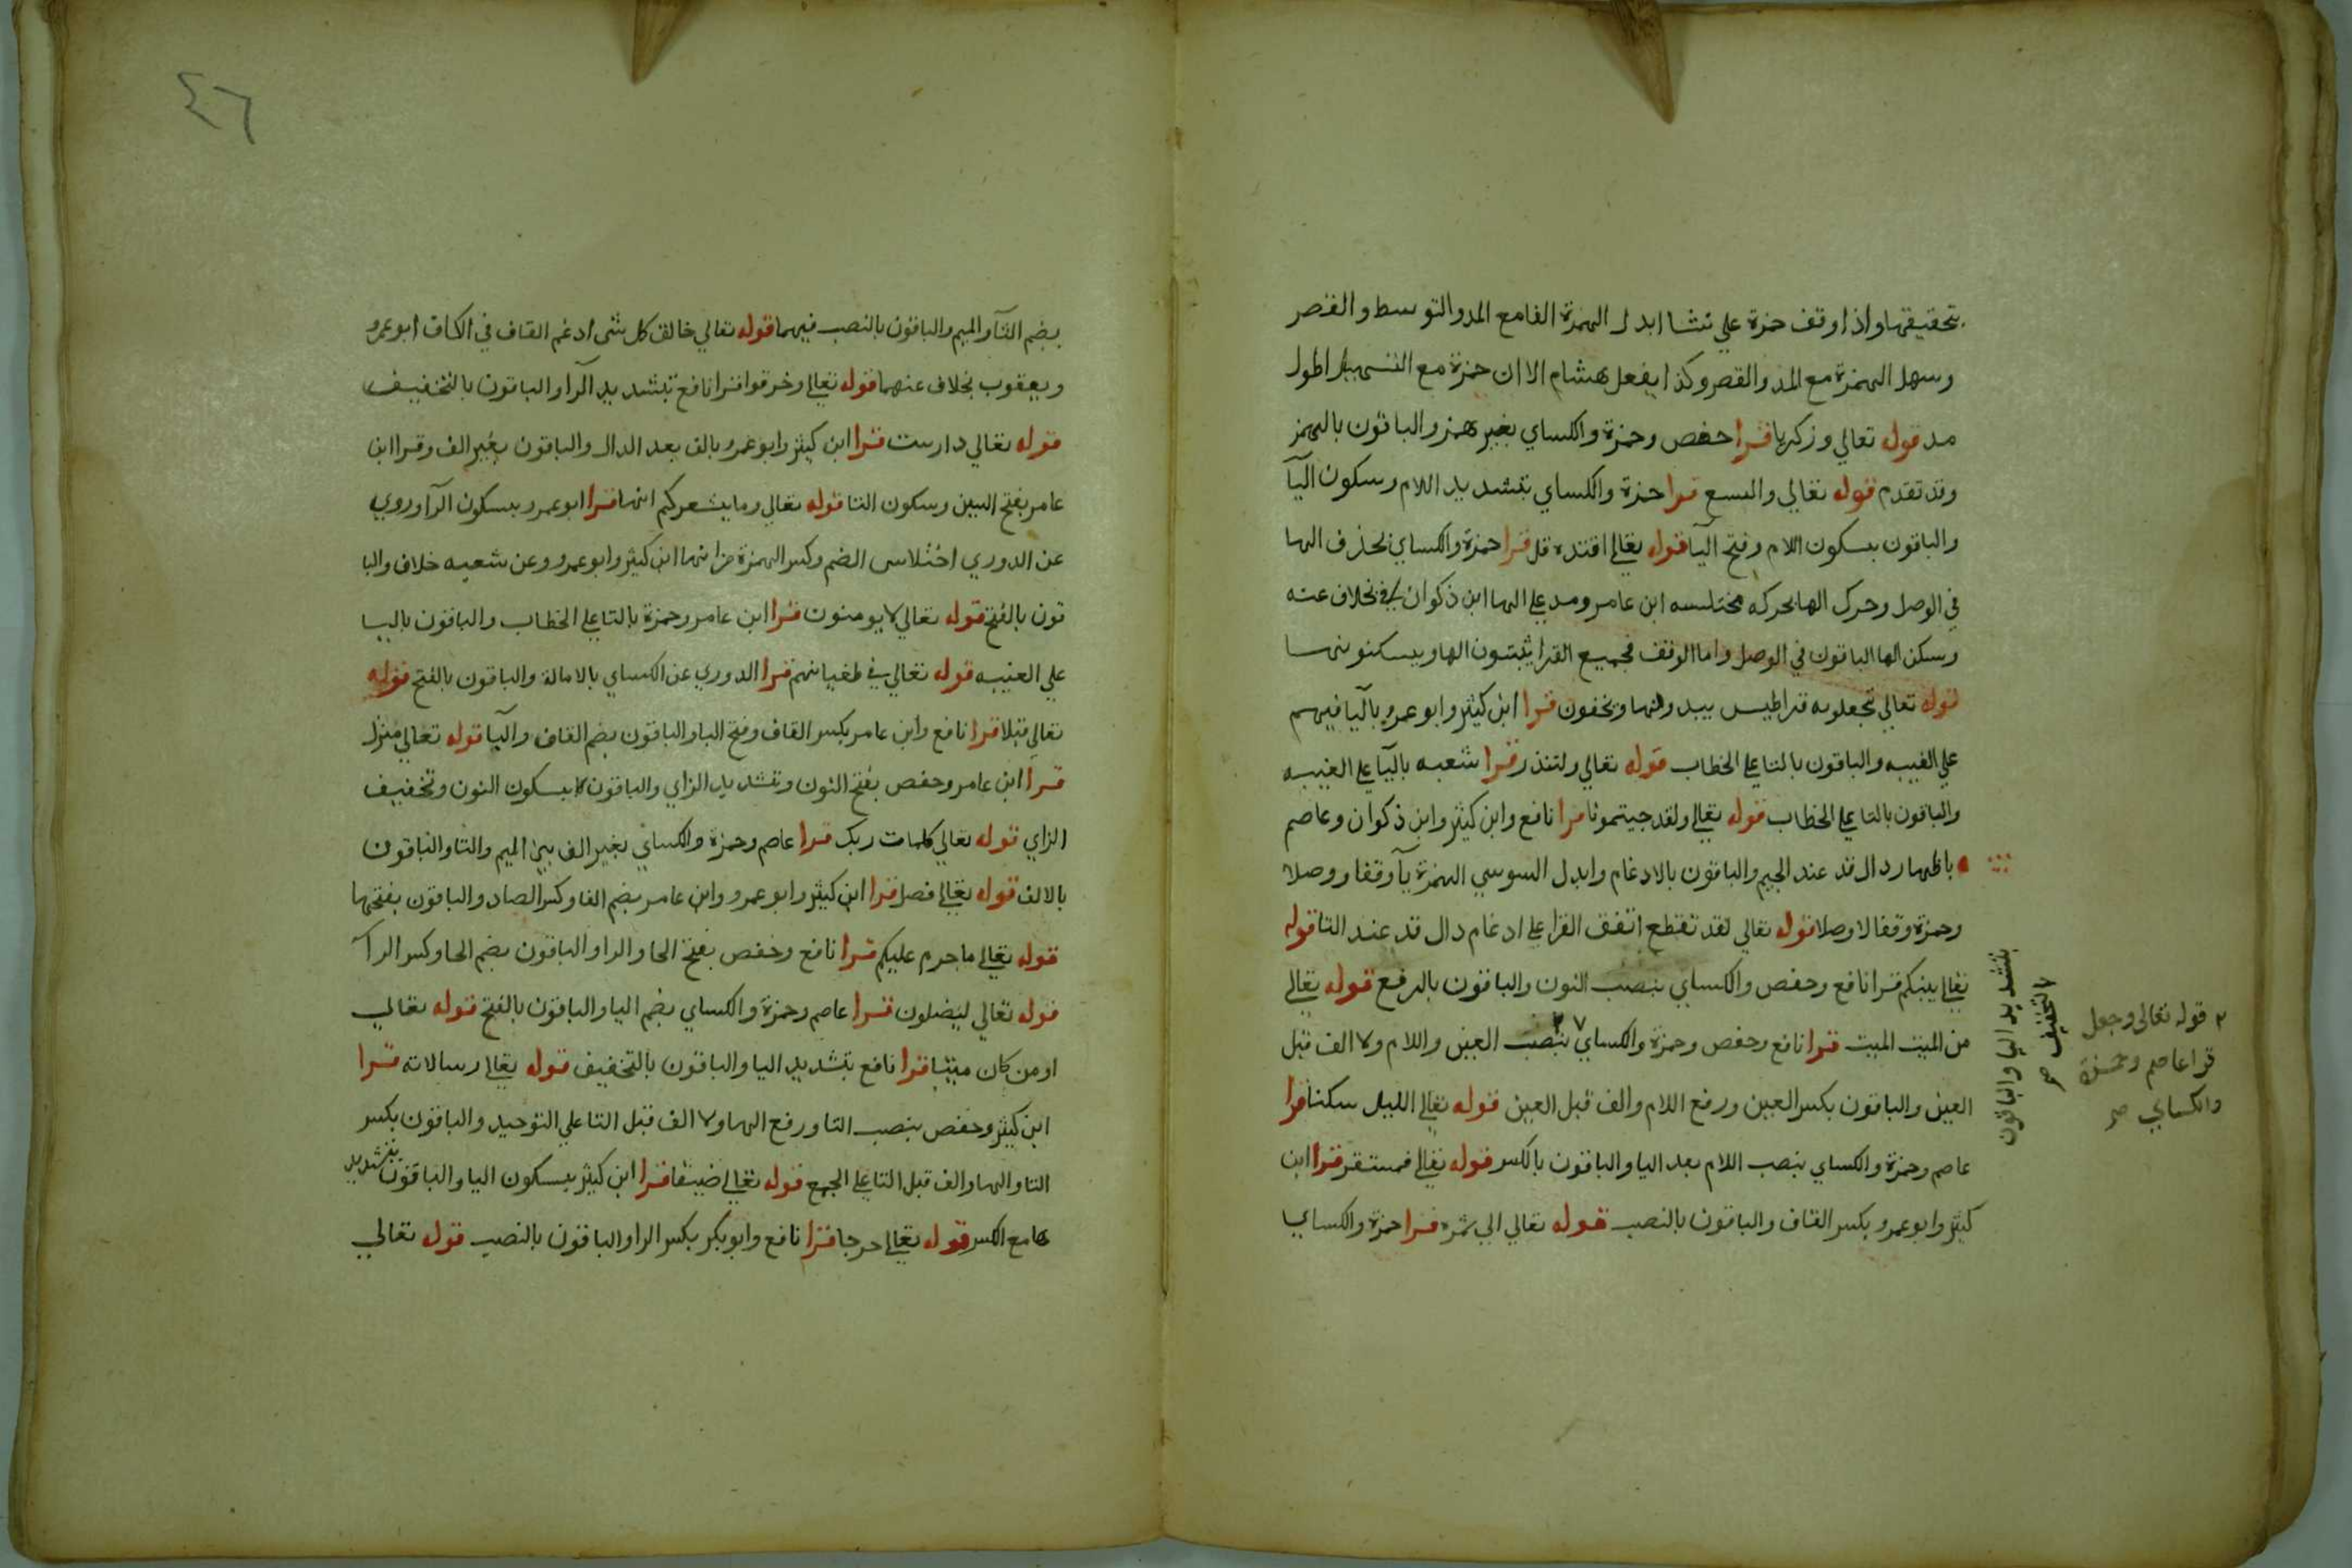 بتحقيقها واذا وقف حمزة علي نشا ابدل الهمزة الفا مع المد والتوسط والقصر
وسهل الهمزة مع المد والقصر وكذا يفعل هشام الا ان حمزة مع التسهيل اطول
مد قوله تعالي وزكريا قرا حفص وحمزة والكساي بغير همز والباقون بالهمز
وقد تقدم قوله تعالي واليسع قرا حمزة والكساي بتشديد اللام وسكون اليآ
والباقون بسكون اللام وفتح اليآ قوله تعالي اقتده قل قرا حمزة والكساي بحذف الها
في الوصل وحرك الها بحركه مختلسه ابن عامر ومد علي الها ابن ذكوان بخلاف عنه
وسكن الها الباقون في الوصل واما الوقف فجميع القرا يثبتون الها ويسكنونها
قوله تعالي تجعلونه قراطيس يبدونها ويخفون قرا ابن كثير وابو عمرو باليآ فيهم
علي الغيبه والباقون بالتا علي الخطاب قوله تعالي ولتنذر قرا شعبه باليآ علي الغيبه
والباقون بالتا علي الخطاب قوله تعالي ولقد جيتمونا قرا نافع وابن كثير وابن ذكوان وعاصم
باظهار دال قد عند الجيم والباقون بالادغام وابدل السوسي الهمزة يآ وقفا ووصلا
وحمزة وقفا لا وصلا قوله تعالي لقد تقطع اتفق القرا علي ادغام دال قد عند التا قوله
تعالي بينكم قرا نافع وحفص والكساي بنصب النون والباقون بالرفع قوله تعالي
من الميت الميت قرا نافع وحفص وحمزة والكساي ٧ ٢ بنصب العين واللام ولا الف قبل
العين والباقون بكسر العين ورفع اللام والف قبل العين قوله تعالي الليل سكنا قرا
عاصم وحمزة والكساي بنصب اللام بعد اليا والباقون بالكسر قوله تعالي فمستقر قرا ابن
كثير وابو عمرو بكسر القاف والباقون بالنصب قوله تعالي الي ثمره قرا حمزة والكساي
بتشديد اليا والباقون
بالتخفيف صح
٢ قوله تعالي وجعل
قرا عاصم وحمزة
والكساي صح
٤٦
بضم الثآ والميم والباقون بالنصب فيهما قوله تعالي خالق كل شي ادغم القاف في الكاف ابو عمرو
ويعقوب بخلاف عنهما قوله تعالي وخرقوا قرا نافع بتشديد الرآ والباقون بالتخفيف
قوله تعالي دارست قرا ابن كثير وابو عمرو بالف بعد الدال والباقون بغير الف وقرا ابن
عامر بفتح السين وسكون التا قوله تعالي وما يشعركم انها قرا ابو عمرو بسكون الرآ وروي
عن الدوري اختلاس الضم وكسر الهمزة من انها ابن كثير وابو عمرو وعن شعبه خلاف والبا
قون بالفتح قوله تعالي لا يومنون قرا ابن عامر وحمزة بالتا علي الخطاب والباقون باليا
علي الغيبه قوله تعالي في طغيانهم قرا الدوري عن الكساي بالامالة والباقون بالفتح قوله
تعالي قبلا قرا نافع وابن عامر بكسر القاف وفتح البا والباقون بضم القاف والبآ قوله تعالي منزل
قرا ابن عامر وحفص بفتح النون وتشديد الزاي والباقون بسكون النون وتخفيف
الزاي قوله تعالي كلمات ربك قرا عاصم وحمزة والكساي بغير الف بين الميم والتا والباقون
بالالف قوله تعالي فصل قرا ابن كثير وابو عمرو وابن عامر بضم الفا وكسر الصاد والباقون بفتحها
قوله تعالي ما حرم عليكم قرا نافع وحفص بفتح الحا والرا والباقون بضم الحا وكسر الرآ
قوله تعالي ليضلون قرا عاصم وحمزة والكساي بضم اليا والباقون بالفتح قوله تعالي
او من كان ميتا قرا نافع بتشديد اليا والباقون بالتخفيف قوله تعالي رسالاته قرا
ابن كثير وحفص بنصب التا ورفع الها ولا الف قبل التا علي التوحيد والباقون بكسر
التا والها والف قبل التا علي الجمع قوله تعالي ضيقا قرا ابن كثير بسكون اليا والباقون بتشديد
ها مع الكسر قوله تعالي حرجا قرا نافع وابو بكر بكسر الرا والباقون بالنصب قوله تعالي